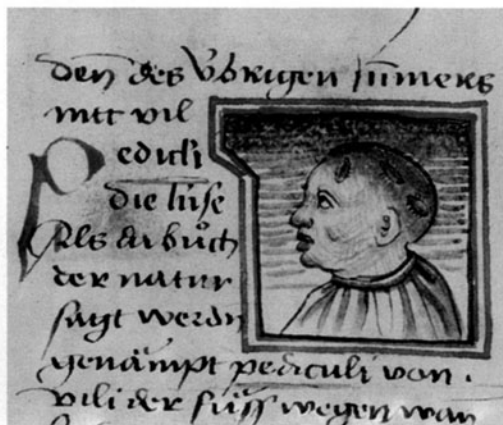 den des übrigen summers
nitt vil
Pedicli
die lüse
Als da bůch
der natur
sagt werdn
genämpt pediculi von
vili der füss wegen wan